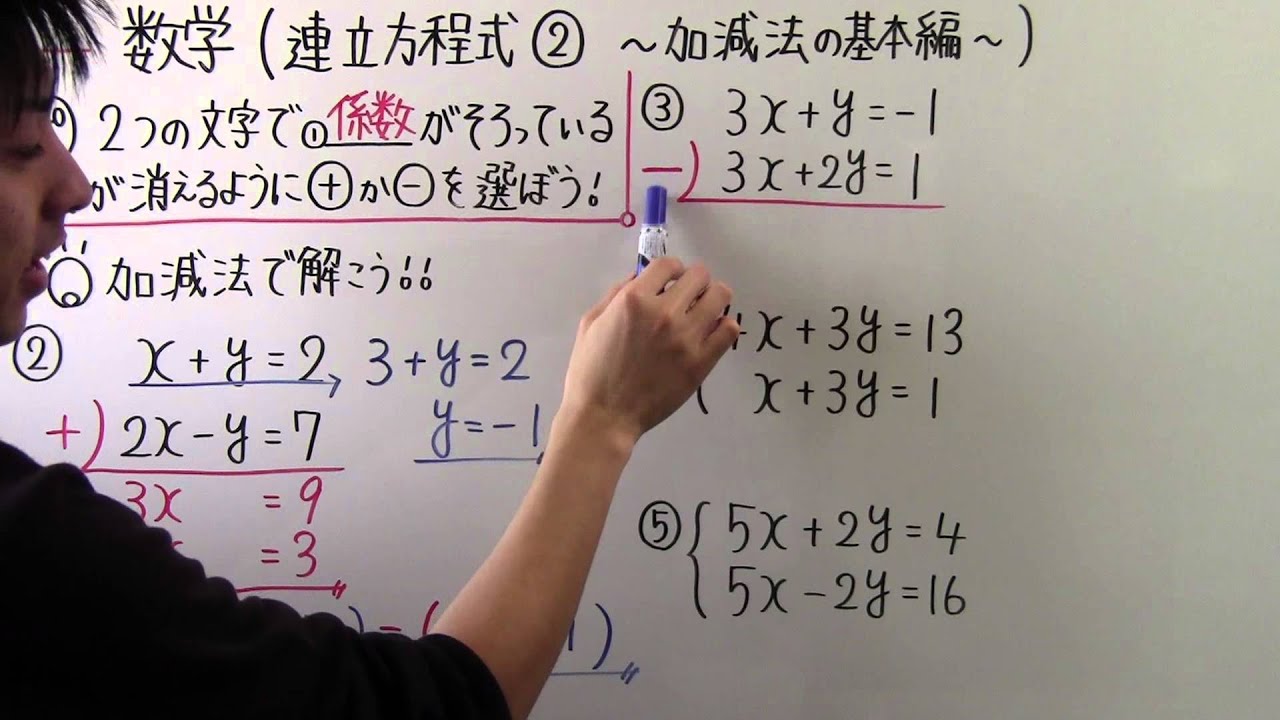 数学(連立方程式② ~加減法の基本編~)
2つの文字で①係数がそろっている
が消えるように⊕か⊖を選ぼう!
加減法で解こう!!
② x+y=2 3+y=2
+) 2x-y=7 y=-1
3x =9
=3
)=( 1)
③ 3x+y=-1
-) 3x+2y=1
4x+3y=13
x+3y=1
⑤ 5x+2y=4
5x-2y=16